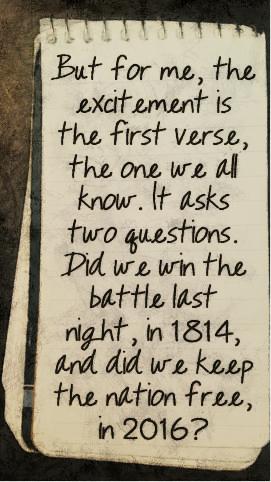 But for me, the
excitement is
the first verse,
the one we all
know. It asks
two questions.
Did we win the
battle last
night, in 1814,
and did we keep
the nation free,
in 2016?